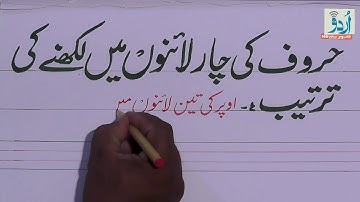 اُردُو
حروف کی چار لائنوں میں لکھنے کی
ترتیب ۴۔ اوپر کی تین لائنوں میں